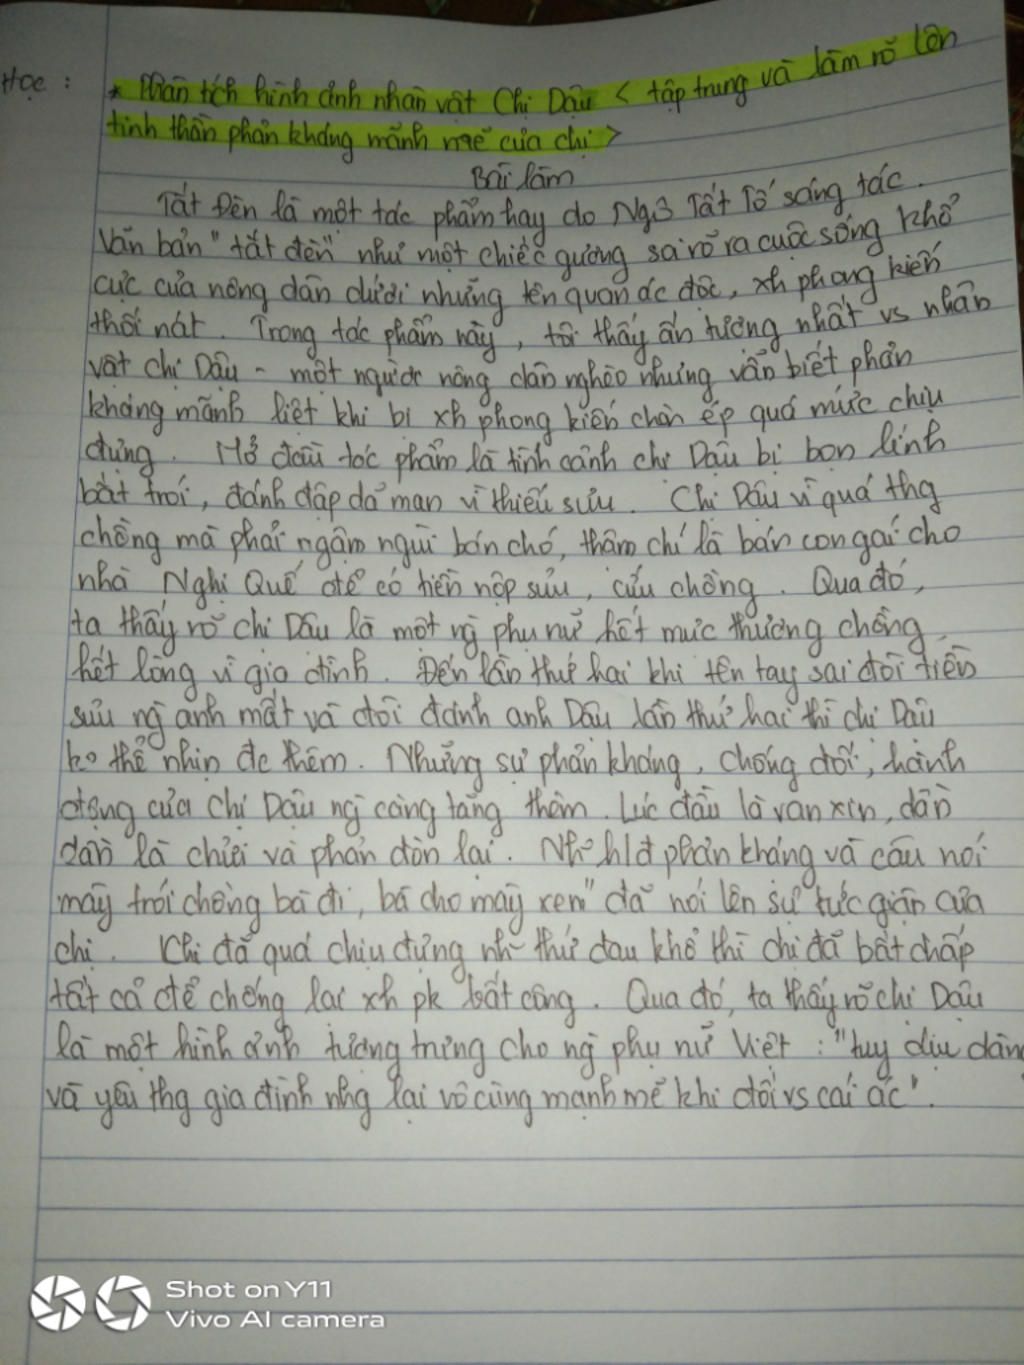 Học :
* Phân tích hình ảnh nhân vật Chị Dậu < tập trung và làm rõ lên
tinh thần phản kháng mãnh mẽ của chị >
Bài làm
Tắt Đèn là một tác phẩm hay do Ngô Tất Tố sáng tác.
Văn bản "tắt đèn" như một chiếc gương soi rõ ra cuộc sống khổ
cực của nông dân dưới những tên quan ác độc, xh phong kiến
thối nát. Trong tác phẩm này, tôi thấy ấn tượng nhất vs nhân
vật chị Dậu - một người nông dân nghèo nhưng vẫn biết phản
kháng mãnh liệt khi bị xh phong kiến chèn ép quá mức chịu
đựng. Mở đầu tác phẩm là tình cảnh chị Dậu bị bọn lính
bắt trói, đánh đập dã man vì thiếu sưu. Chị Dậu vì quá thg
chồng mà phải ngậm ngùi bán chó, thậm chí là bán con gái cho
nhà Nghị Quế để có tiền nộp sưu, cứu chồng. Qua đó,
ta thấy rõ chị Dậu là một ng phụ nữ hết mực thương chồng,
hết lòng vì gia đình. Đến lần thứ hai khi tên tay sai đòi tiền
sưu ng anh mất và đòi đánh anh Dậu lần thứ hai thì chị Dậu
ko thể nhịn đc thêm. Những sự phản kháng, chống đối, hành
động của chị Dậu ng càng tăng thêm. Lúc đầu là van xin, dần
dần là chửi và phản đòn lại. hđ phản kháng và câu nói
mày trói chồng bà đi, bà cho mày xem" đã nói lên sự tức giận của
chị. Khi đã quá chịu đựng thứ đau khổ thì chị đã bất chấp
tất cả để chống lại xh pk bất công. Qua đó, ta thấy rõ chị Dậu
là một hình ảnh tượng trưng cho ng phụ nữ Việt : "tuy dịu dàng
và yêu thg gia đình nhg lại vô cùng mạnh mẽ khi đối vs cái ác".
Shot on Y11
Vivo AI camera